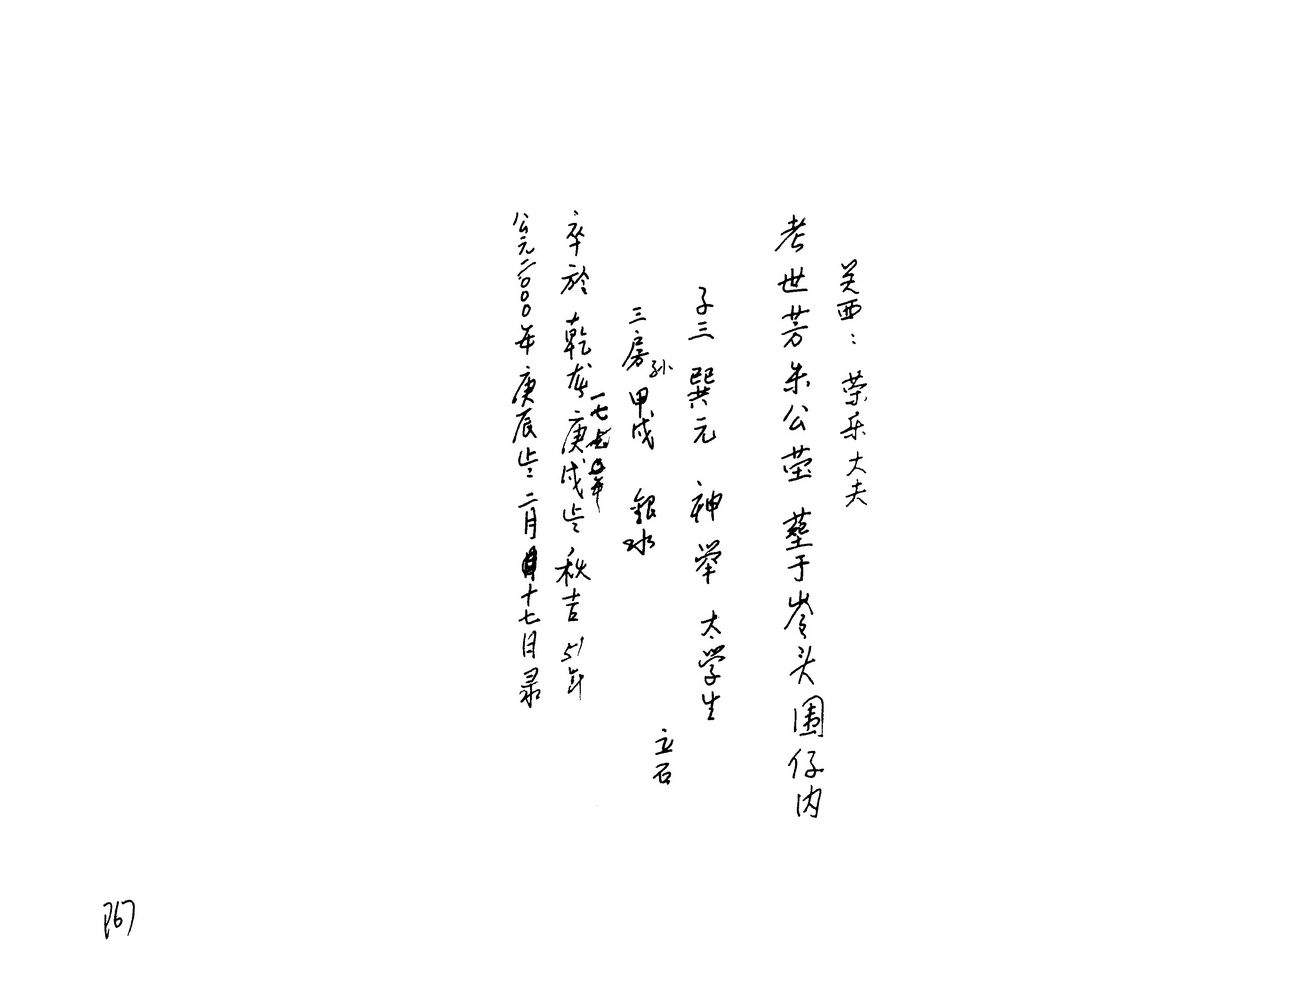 关西：荣乐大夫
考世芳朱公茔 葬于岺头围仔内
子三 巽元 神举 太学生
三房孙甲戍 銀水
立石
一七七0年
卒於乾龙庚戍歲秋吉51年
公元二000年庚辰歲二月十七日录
P67